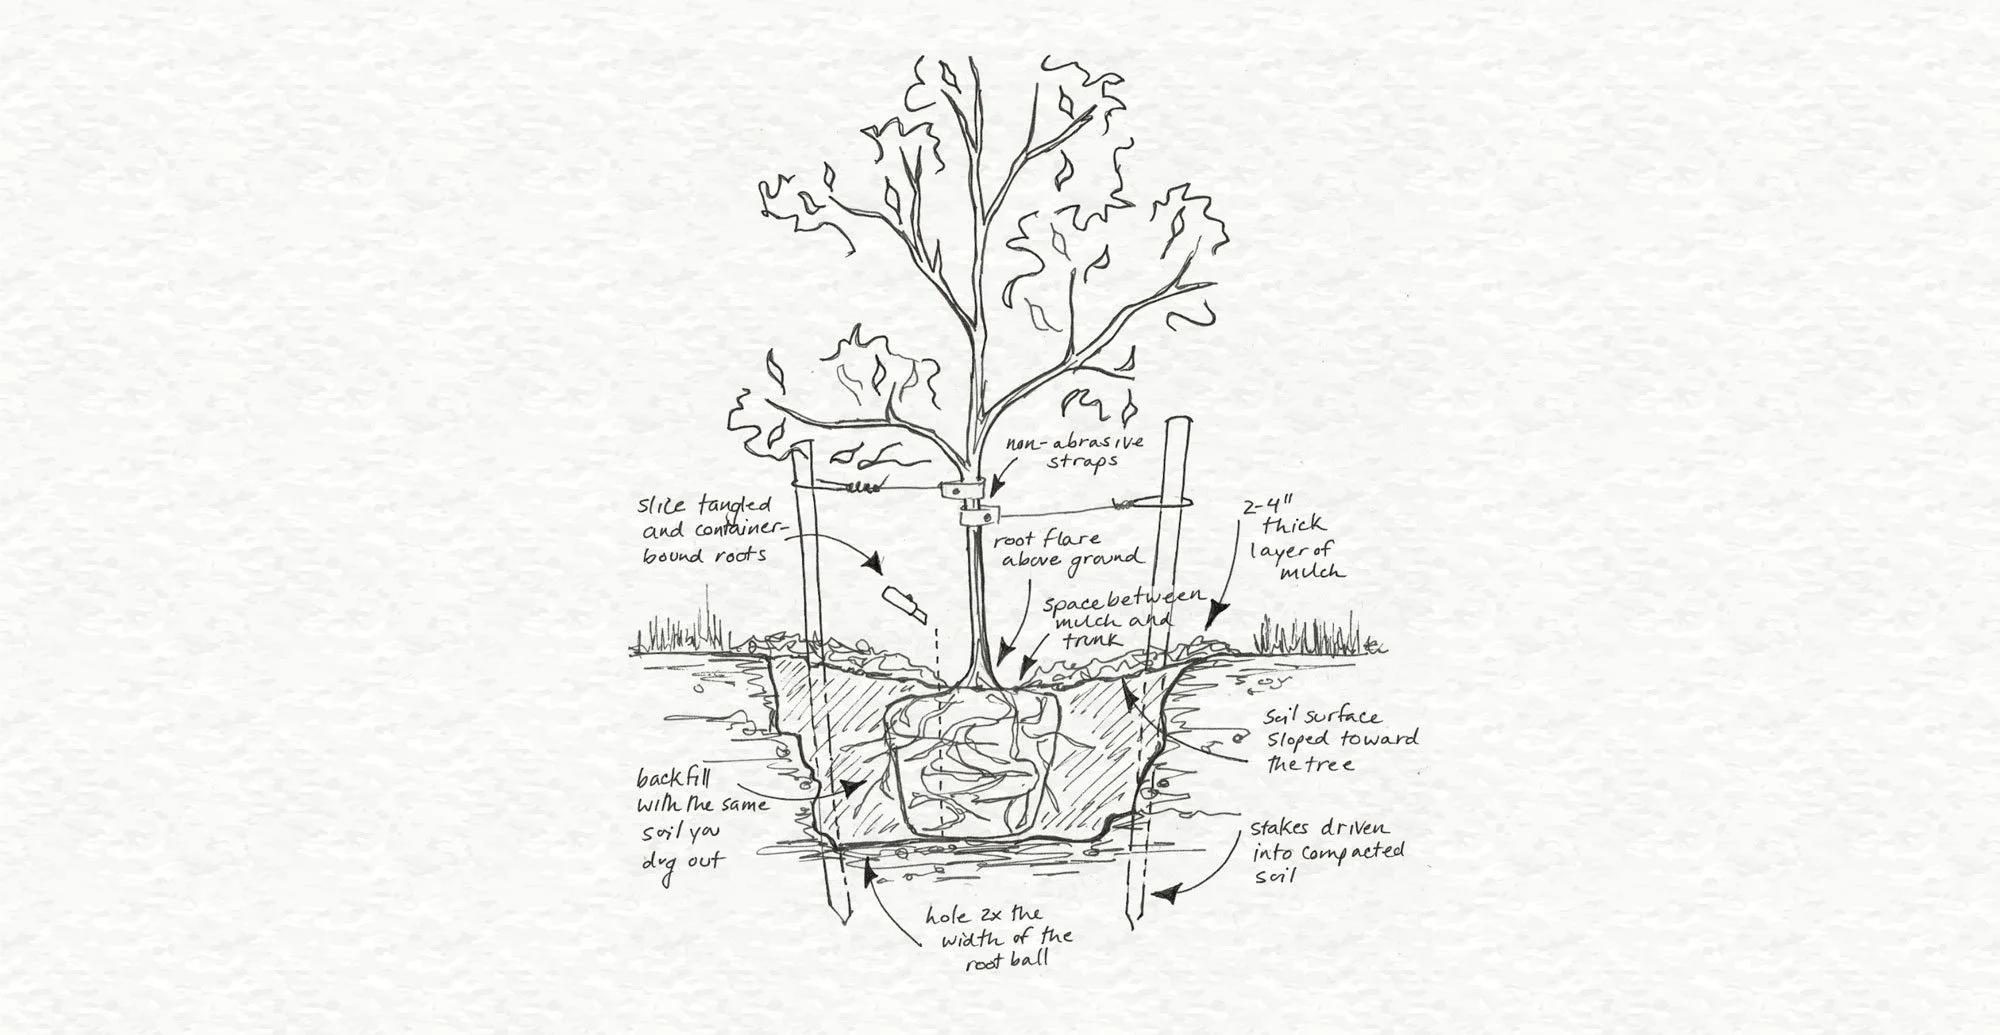 non-abrasive
straps
slice tangled
and container-
bound roots
2-4"
thick
layer of
mulch
root flare
above ground
space between
mulch and
trunk
soil surface
sloped toward
the tree
backfill
with the same
soil you
dug out
stakes driven
into compacted
soil
hole 2x the
width of the
root ball